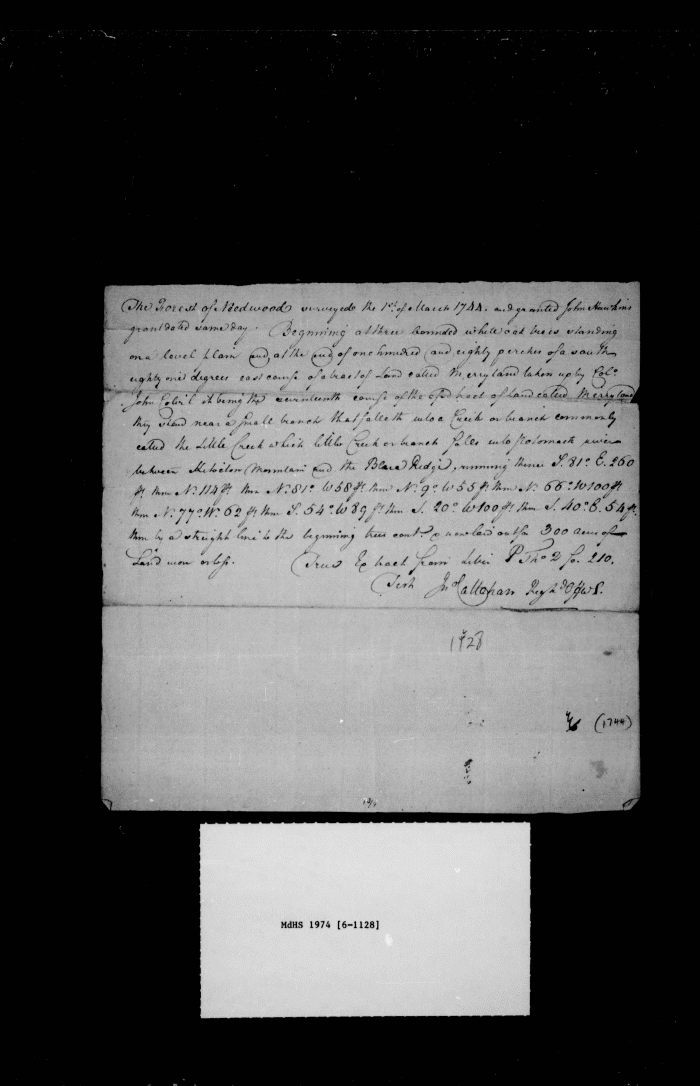 The Forest of Needwood surveyed the 1st of March 1744. and granted John Hawkins
grant dated same day. Beginning at three bounded white oak trees standing
on a level plain and at the end of one hundred and eighty perches of a south
eighty one degrees east course of a tract of Land called Merryland taken up by Colo.
John Colvil it being the seventeenth course of the afd. tract of Land called Merryland
they stand near a small branch that falleth into a Creek or branch commonly
called the Little Creek which little Creek or branch falls into Potomack river
between Kitocton Mountain and the Blue Ridge, running thence S. 81° E. 260
ps. then N. 114 ps. then N. 81° W 58 ps. then N. 9° W 55 ps. then N. 66° W 100 ps.
then N. 77° W. 62 ps. then S. 54° W 89 ps. then S. 20° W 100 ps. then S. 40° E. 54 ps.
then by a streight line to the beginning trees cont. & now laid out for 300 acres of
Land more or less. True Extract from Liber P Tho D fo. 210.
Test Jno Callahan Regr. Ld. Off. W S.
1128
(1744)
MdHS 1974 [6-1128]